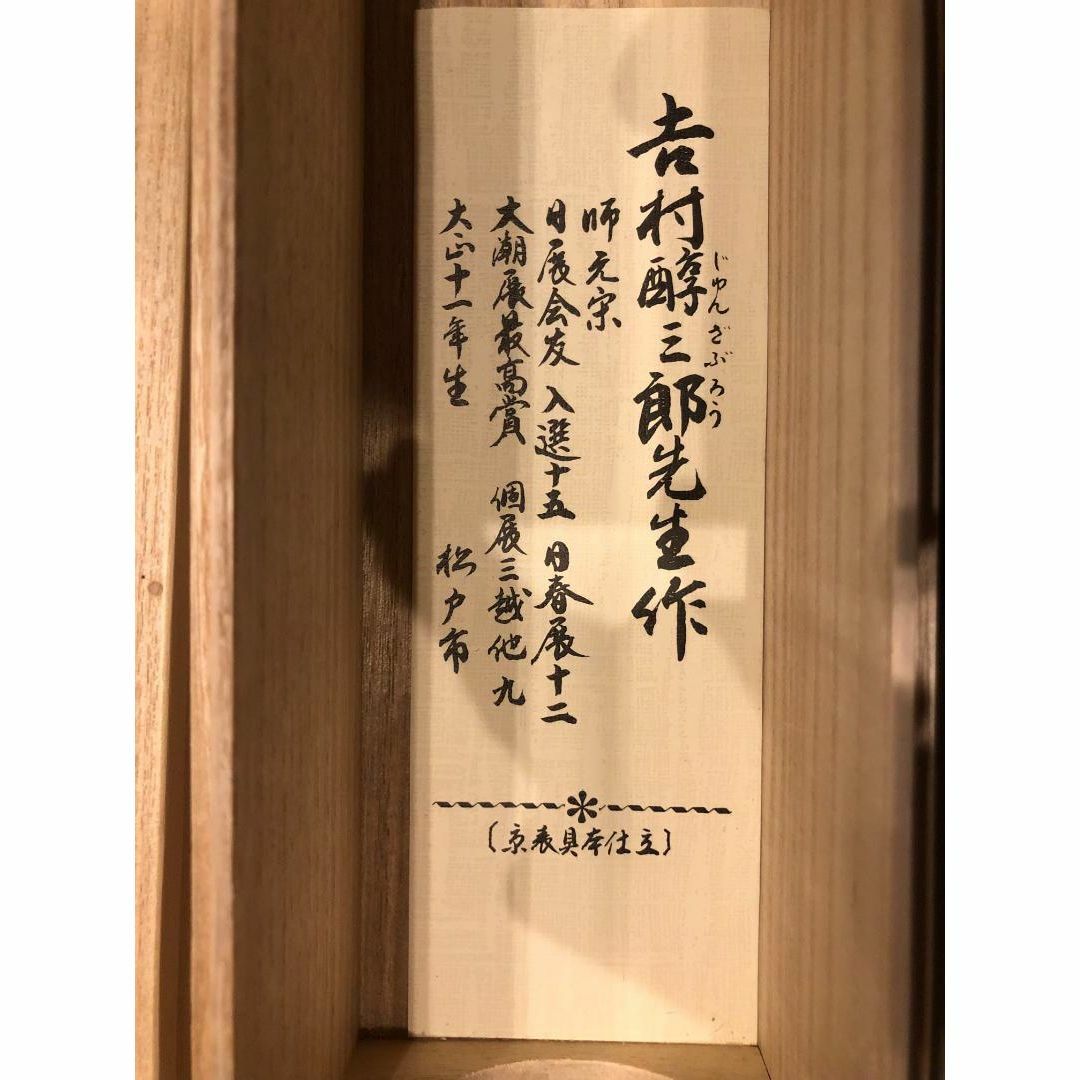 吉村醇三郎先生作
じゅんざぶろう
師元宋
日展会友 入選十五 日春展十二
大潮展最高賞 個展三越他九
大正十一年生 松戸市
〔京表具本仕立〕